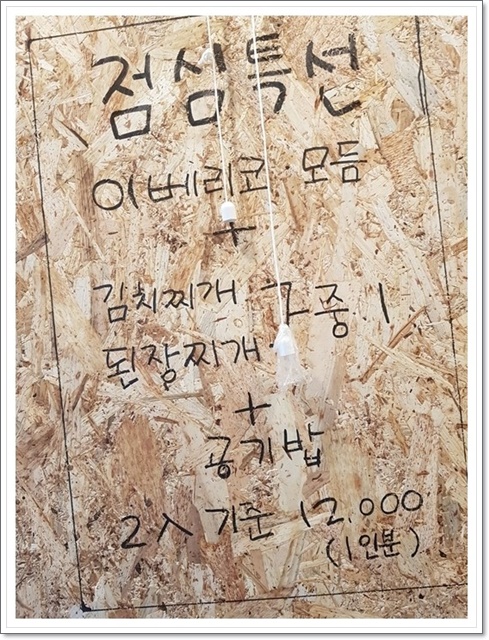 점심특선
이베리코 모듬
+
김치찌개
된장찌개 중 1
+
공기밥
2人 기준 12,000
(1인분)